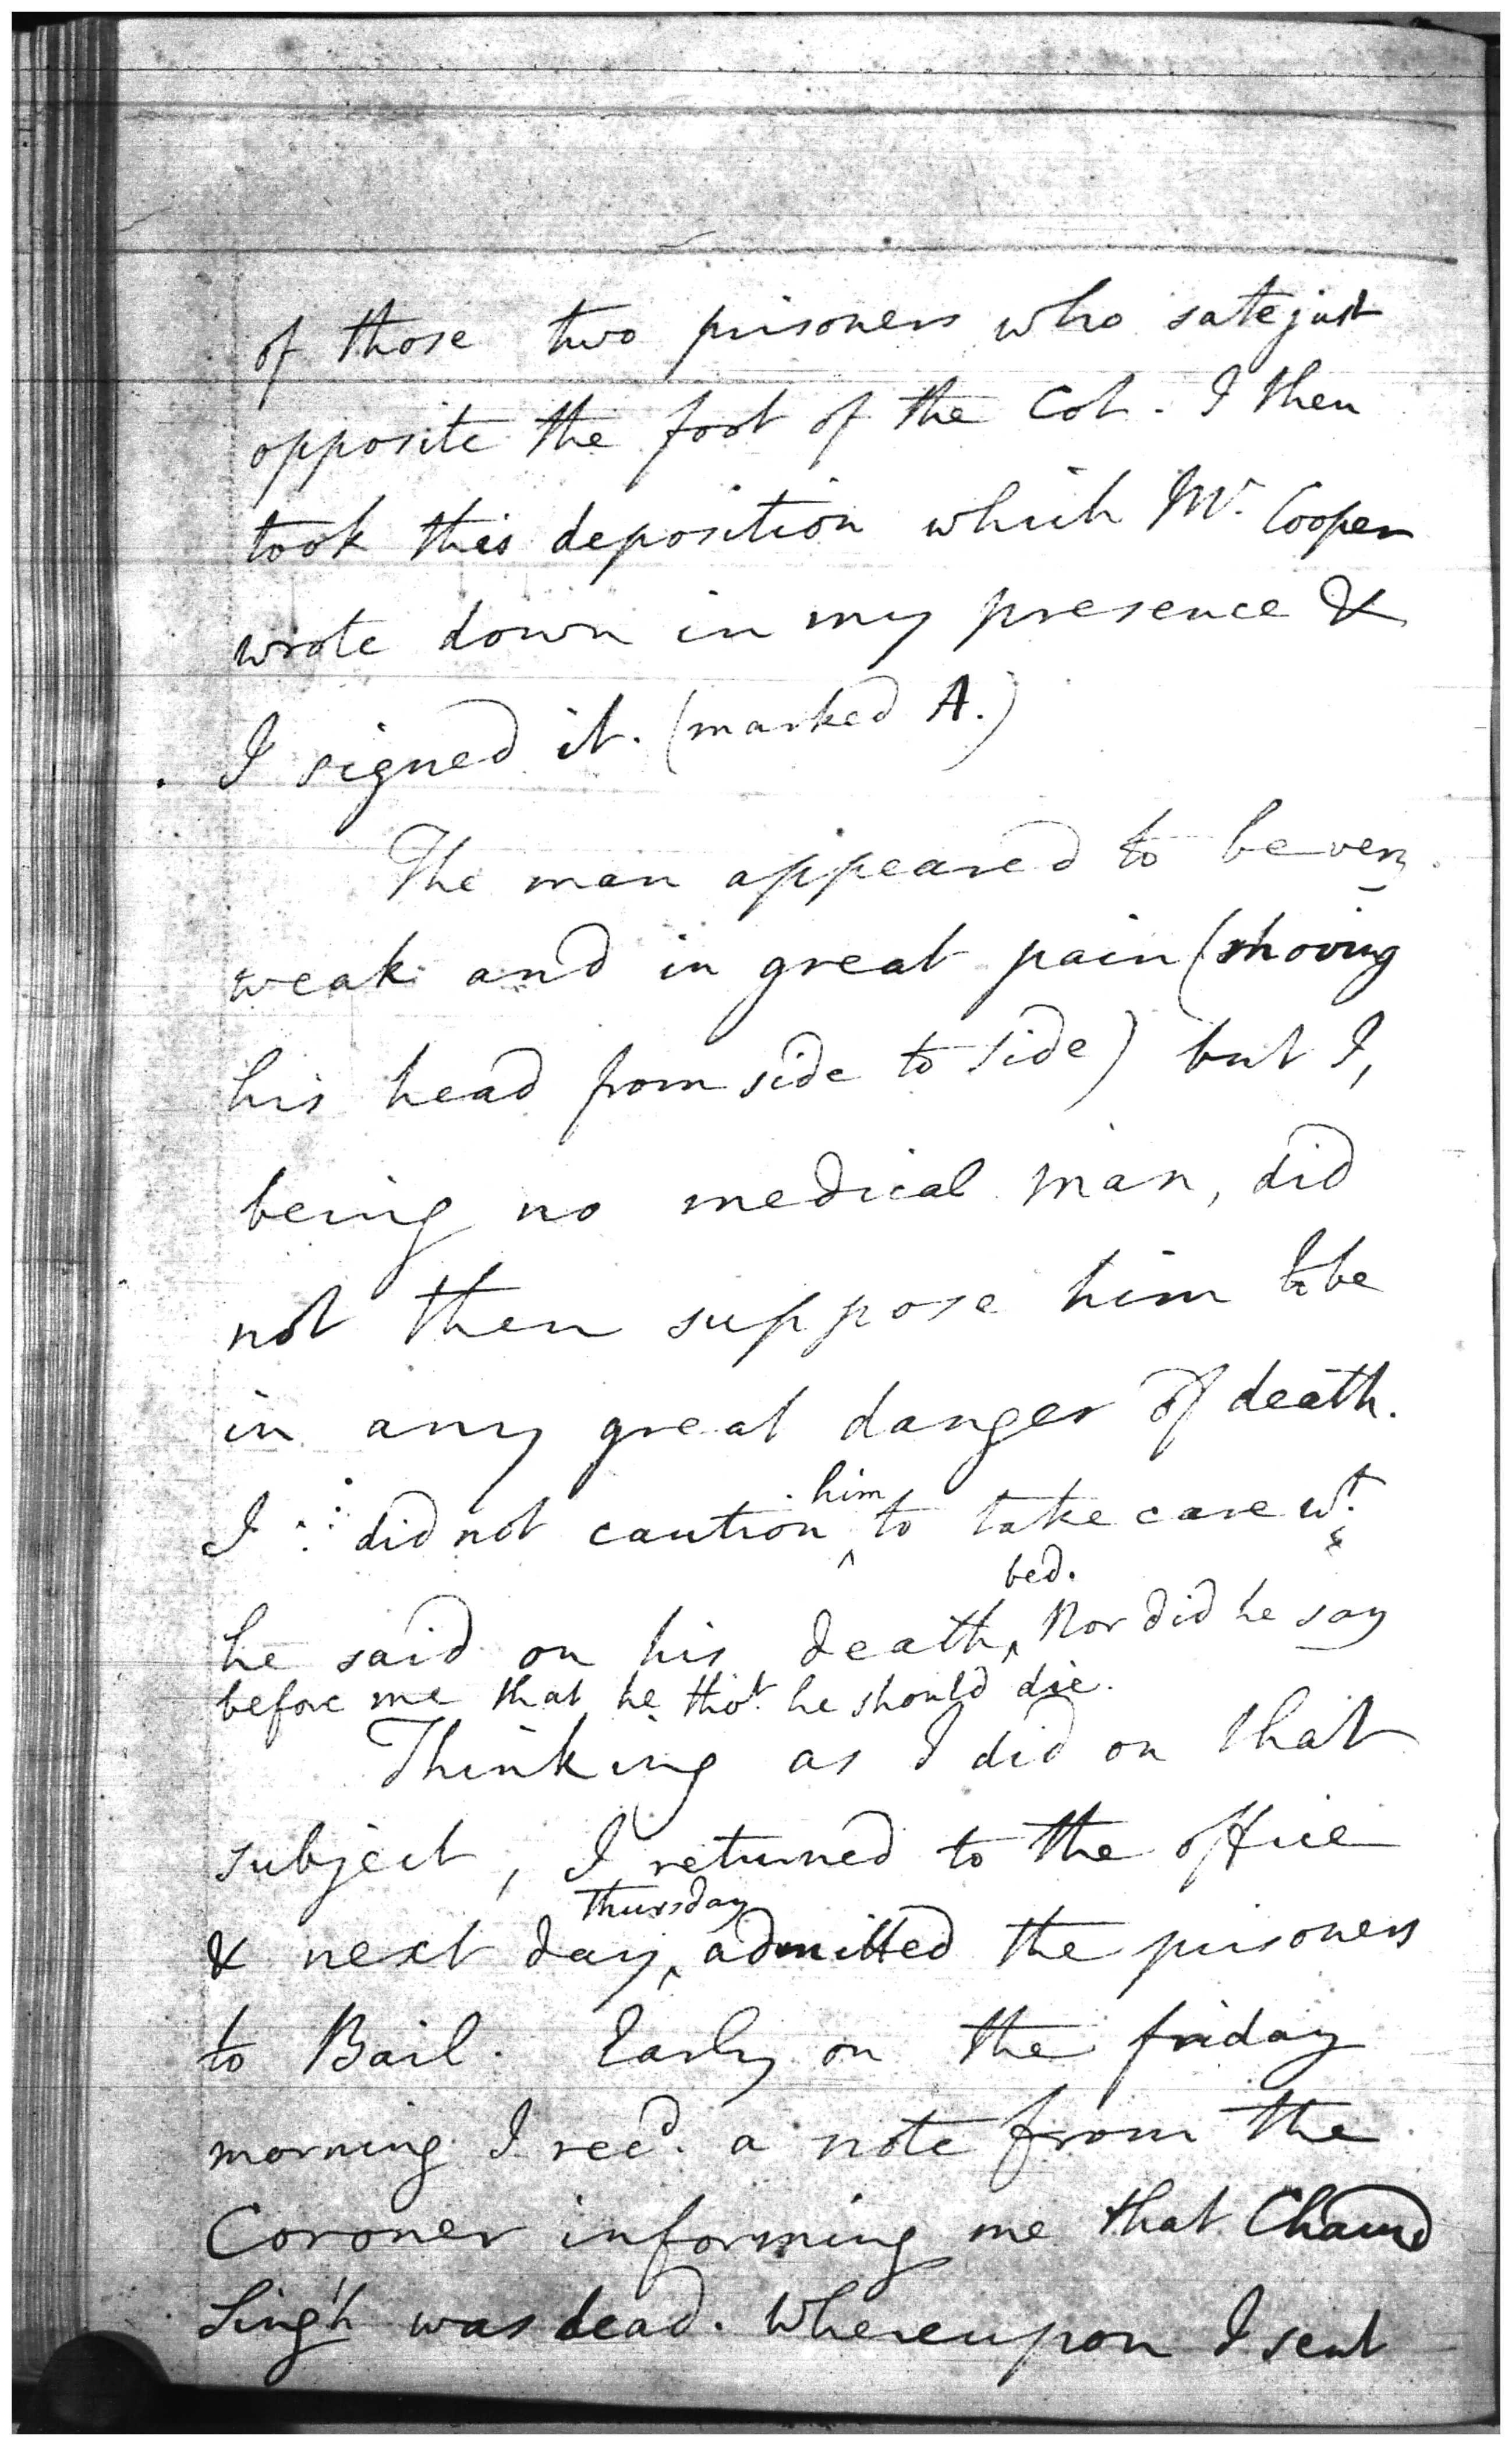 of those two prisoners who sate just
opposite the foot of the Cot. I then
took this deposition which Mr. Cooper
wrote down in my presence &
I signed it. (marked A.)
The man appeared to be very
weak and in great pain (moving
his head from side to side) but I,
being no medical man, did
not then suppose him to be
in any great danger of death.
I ∴ did not caution him to take care wt.
he said on his death bed. Nor did he say
before me that he thot. he should die.
Thinking as I did on that
subject, I returned to the office
& next day, Thursday admitted the prisoners
to Bail. Early on the friday
morning I recd. a note from the
Coroner informing me that Chaund
Sing'h was dead. Whereupon I sent